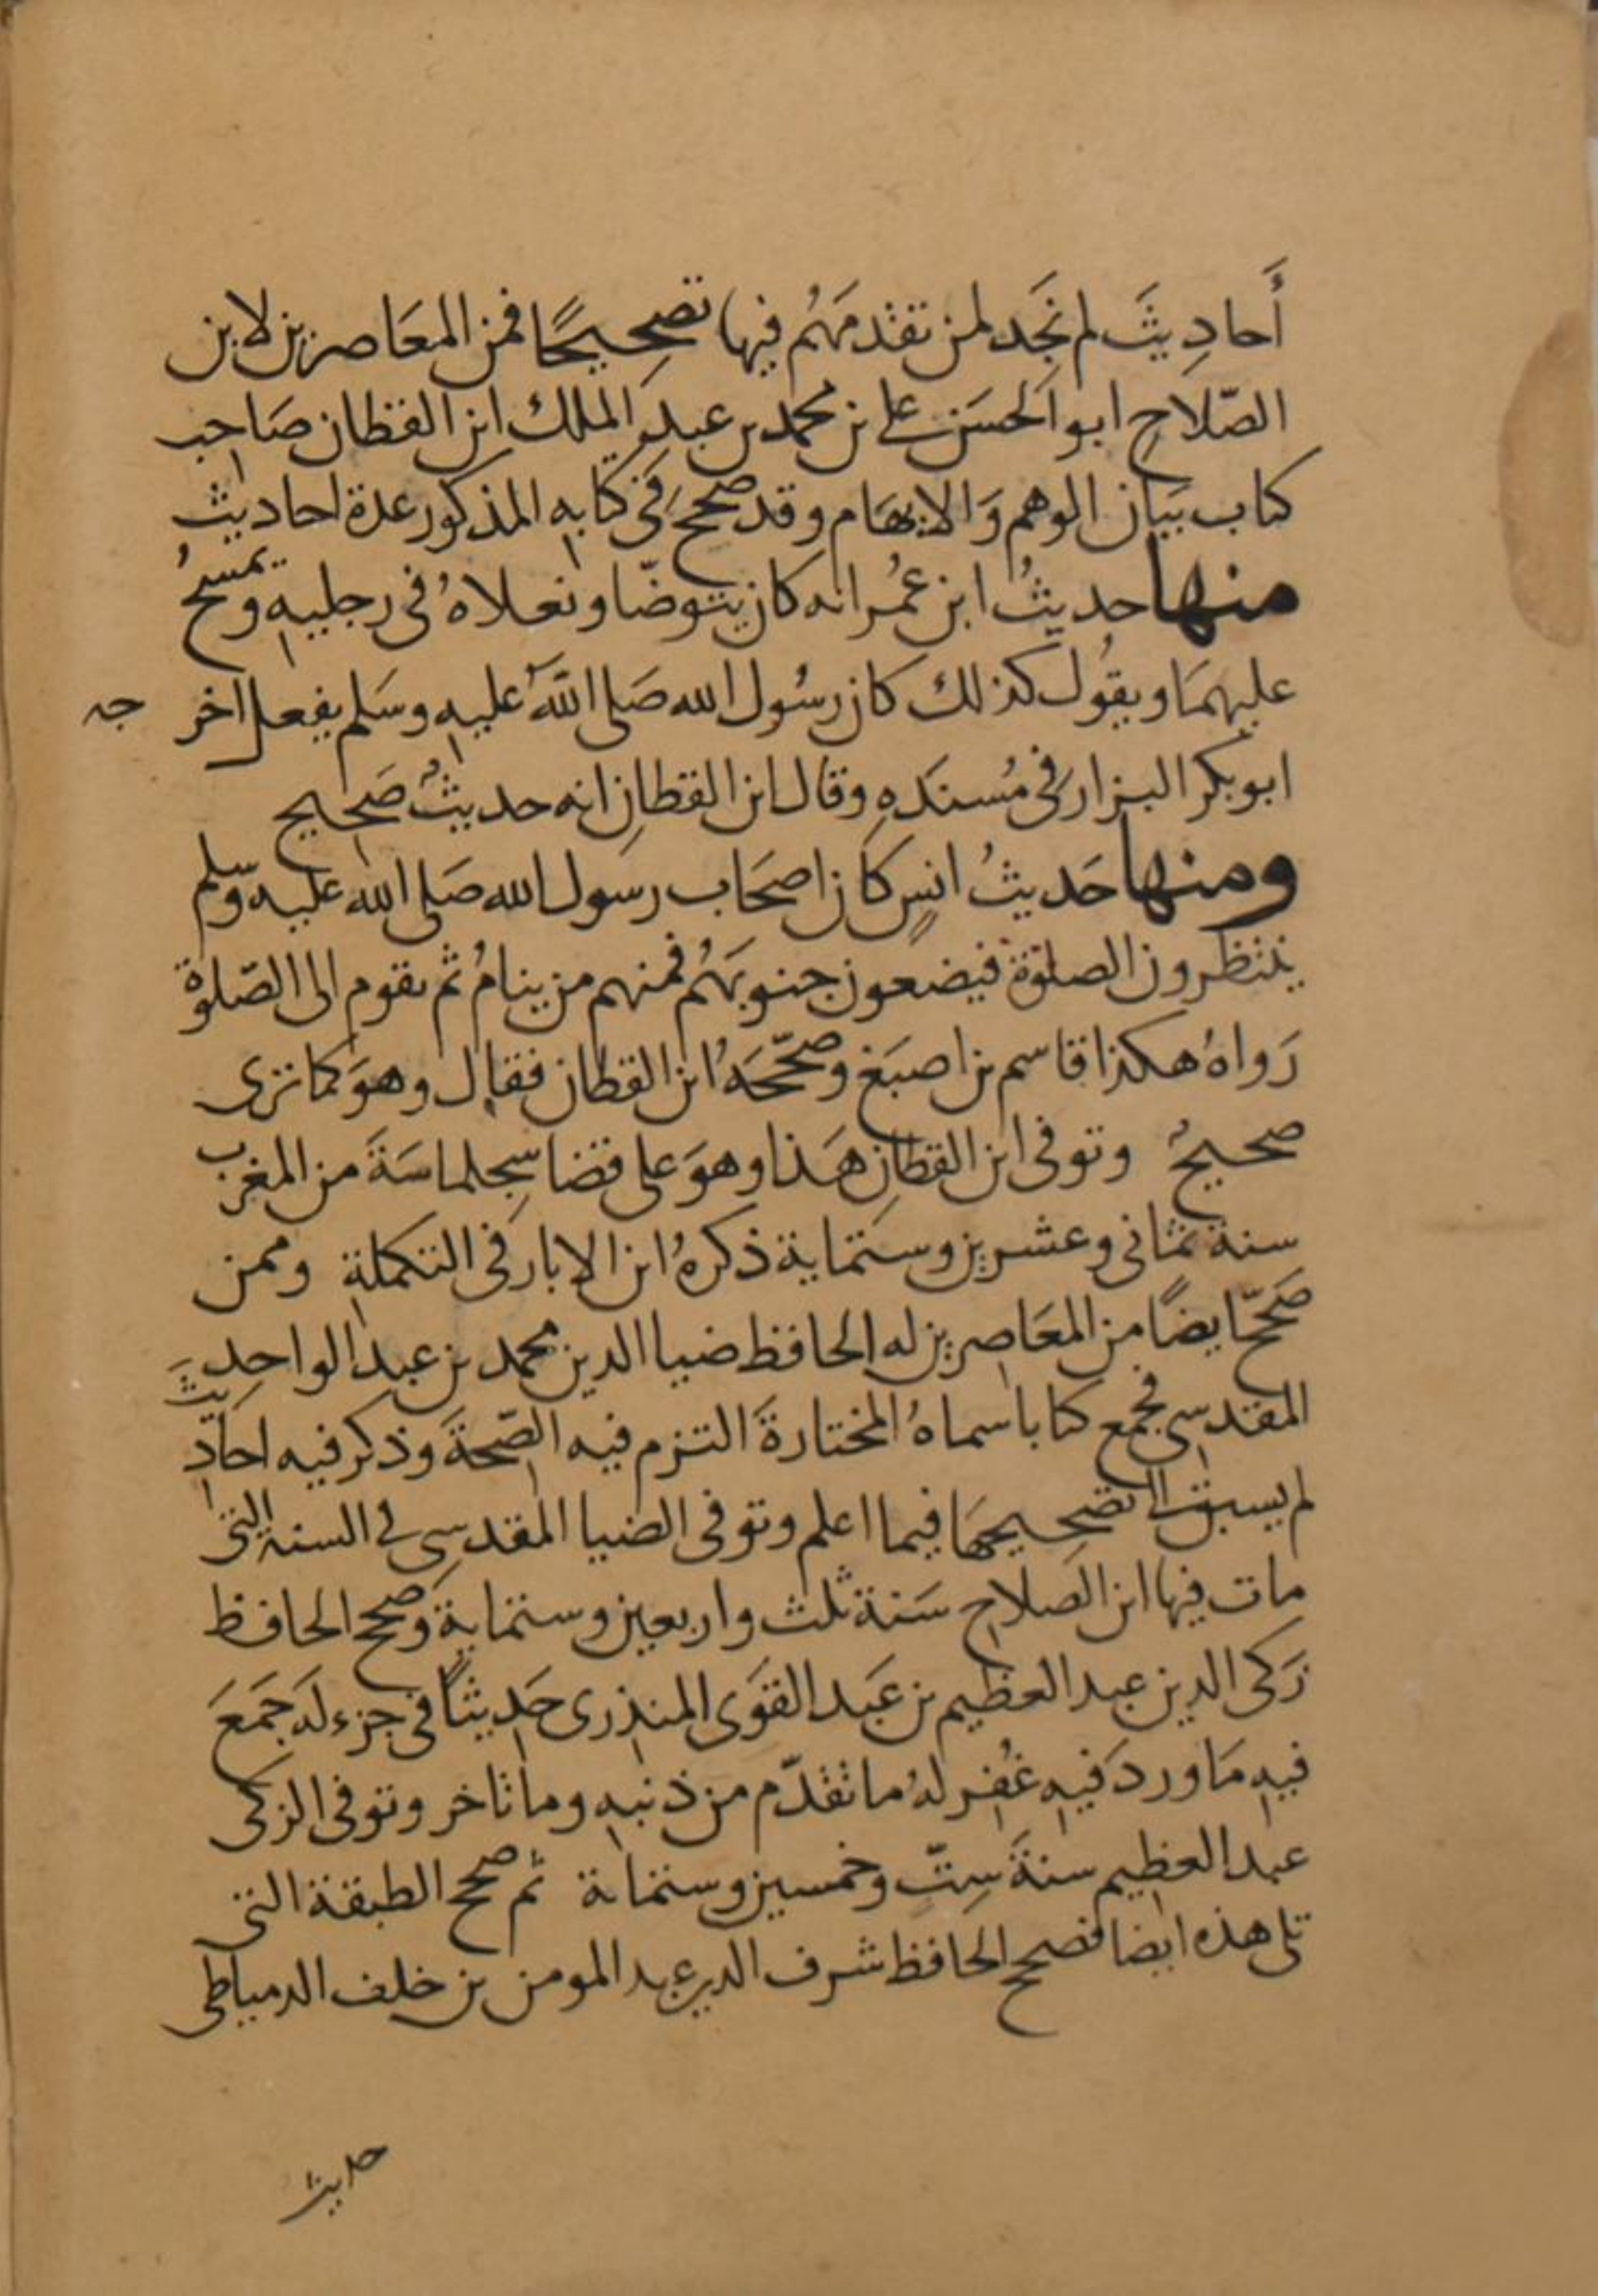 أَحادِيثَ لم نَجَد لمن تقدمَهُم فيها تصحِيحًا فمن المعَاصرين لابن
الصّلاحِ ابو الحسَن على بن محمد بن عبد الملك ابن القطان صَاحِب
كتاب بيَان الوهم وَالايهَام وقد صحح فى كتابه المذكور عدة احاديث
منها حديثُ ابن عمُر انه كان يتوضّا ونعلاهُ فى رجليه ويمسحُ
عليهمَا ويقُول كذلك كان رسُول الله صَلى اللهَ عليه وسَلم يفعل اخر
جه
ابو بكر البزار فى مُسندَهِ وقال ابن القطان انه حديثُ صَحِيح
ومنها حَديثُ انسٍ كان اصحَاب رسَول الله صَلى الله عليه وسلم
ينتظرون الصلوة فيضعون جنوبهَمُ فمنهم من ينامُ ثم يقوم الى الصّلوة
رَواهُ هكذا قاسم بن اصبَغ وصحّحَهُ ابن القطان فقال وهوَ كما ترى
صحيحُ وتوفى ابن القطان هَذا وهوَ على قضا سِجلماسَةَ من المغرب
سنة ثمانى وعشرين وستماية ذكرهُ ابن الابار فى التكملة وممن
صَححّ ايضًا من المعَاصِرين له الحافظ ضيا الدين محمد بن عبد الواحِد
المقدسى فجمع كتابا سماهُ المختارةَ التزم فيه الصّحةَ وذكر فيه احَاديثَ
لم يسبق الى تصحِيحهَا فيما اعلم وتوفى الضيا المقدسى فى السنة التى
مات فيها ابن الصلاح سَنة ثلث واربعين وستماية وَصحح الحافظ
زَكى الدين عبد العظيم بن عَبد القوَى المنذرى حَديثاً فى جزء لهَ جَمَعَ
فيه مَا وردَ فيه غُفِر لهُ ما تقدّم من ذنبه وما تاخر وتوفى الزكى
عبد العظيم سنةَ سِتّ وخمسين وستماية ثم صحح الطبقة التى
تلى هذه ايضا فصحح الحافظ شرف الدين عبد المومن بن خلف الدمياطى
حديث